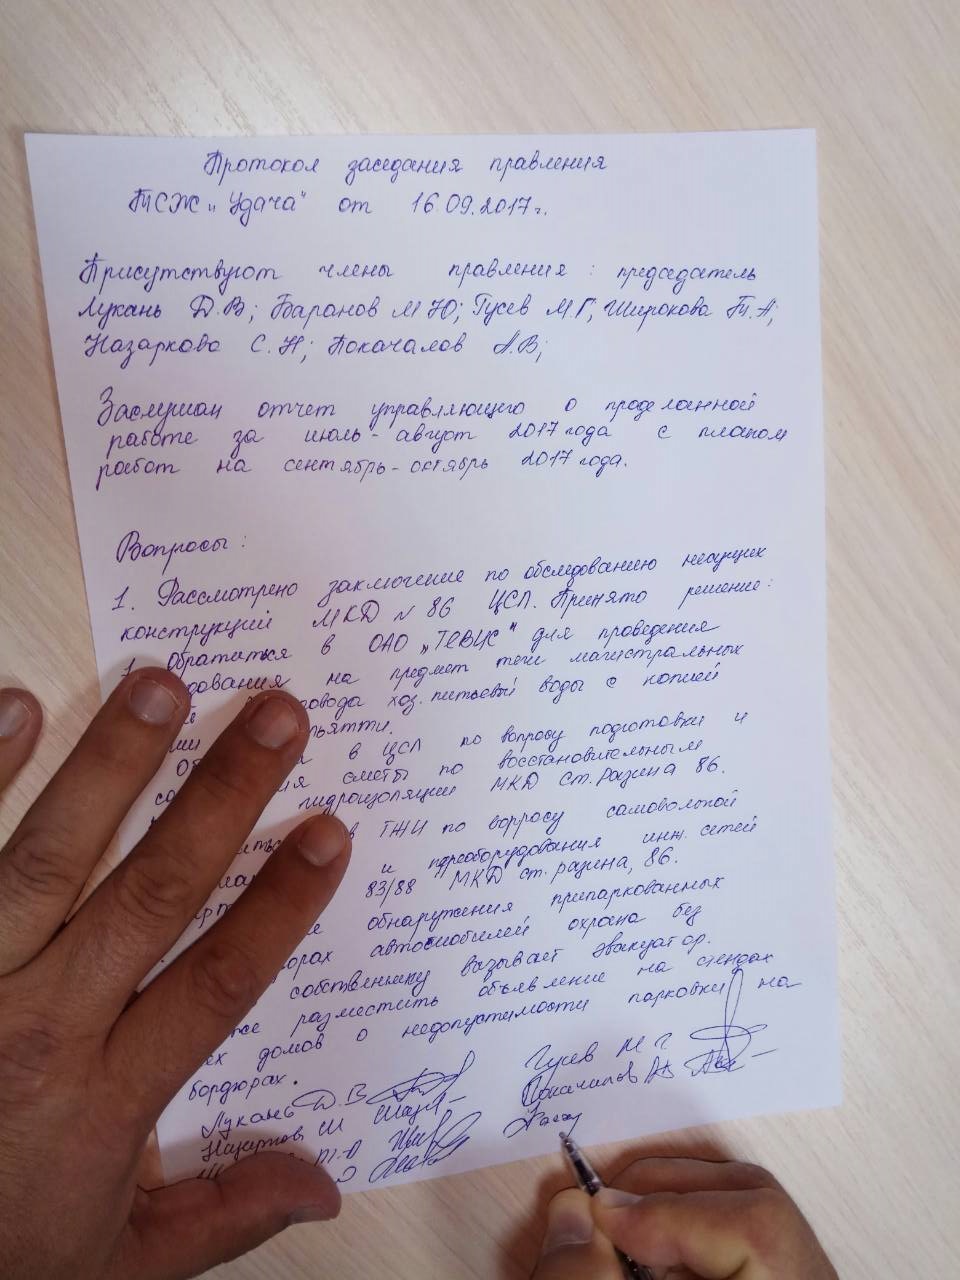 Протокол заседания правления
ТСЖ „Удача" от 16.09.2017г.
Присутствуют члены правления: председатель
Лукань Д.В; Баранов М Ю; Гусев М.Г; Широкова Т.А;
Назаркова С.Н; Покачалов А.В;
Заслушан отчет управляющего о проделанной
работе за июль-август 2017 года с планом
работ на сентябрь-октябрь 2017 года.
Вопросы:
1. Рассмотрено заключение по обследованию несущих
конструкций МКД № 86 ЦСЛ. Принято решение:
обратиться в ОАО „ТЕВИС" для проведения
на предмет течи магистральных
хоз. питьевый воды с копией
в ЦСЛ по вопросу подготовки и
сметы по восстановительным
гидроизоляции МКД ст. разина 86.
в ГЖИ по вопросу самовольной
и переоборудования инж. сетей
83/88 МКД ст. разина, 86.
обнаружения припаркованных
автомобилей охрана без
собственнику вызывает эвакуатор.
разместить объявление на стендах
домов о недопустимости парковки на
бордюрах.
Лукань Д.В Гусев М Г